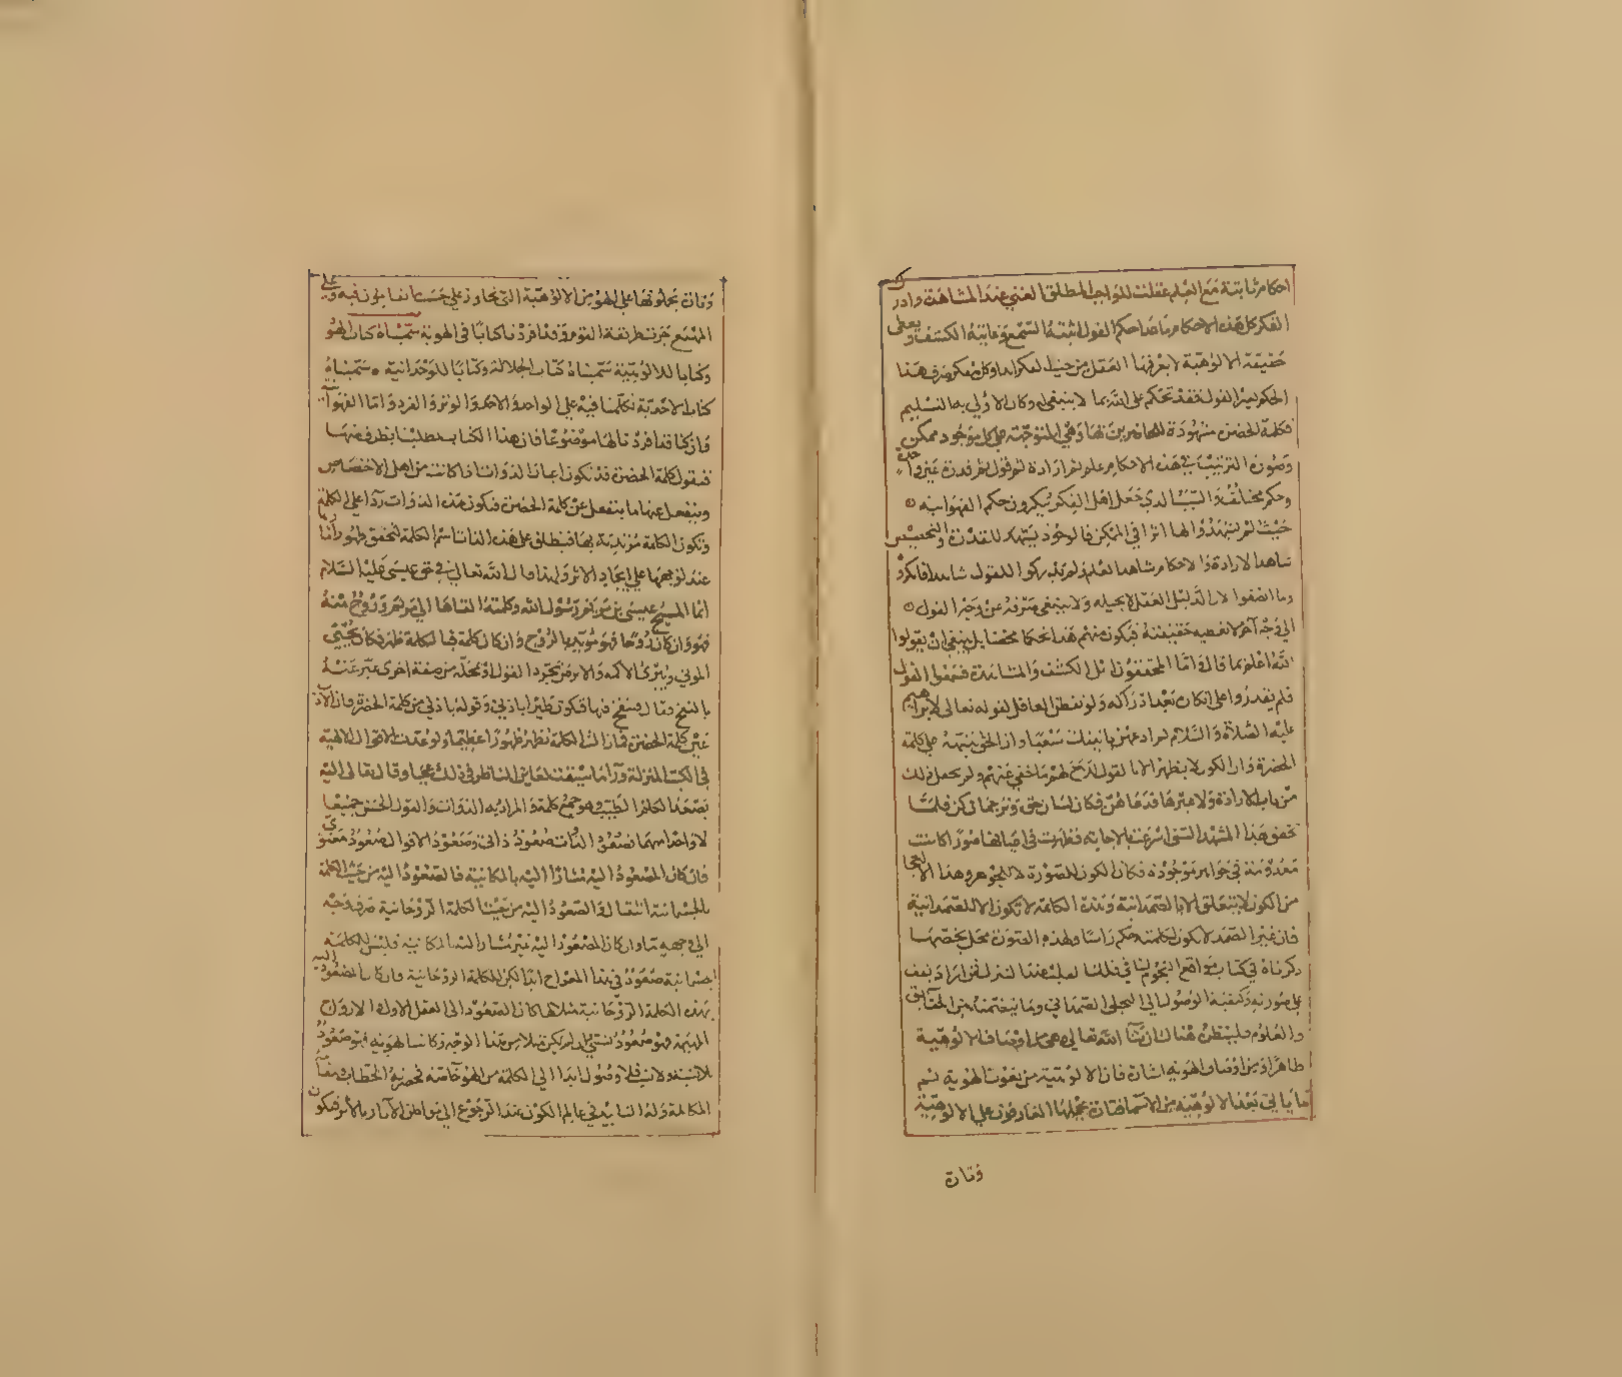 احكام ثابتة مع العلم عقلت للواجب المطلق الغني عند المشاهدة وادرك
الفكر كل هذه الاحكام ما عدا حكم القول اثبته السمع وعاينه الكشف ويعطى
حقيقة الالوهية لا يعرفها العقل من حيث الفكر ابدا وكل مفكر صرف هذا
الحكم لغير القول فقد تحكم على الله بما لا ينبغي له وكان الاولى به التسليم
فكلمة الحضرة مشهودة للحاضرين بها وهي المتوجهة على كل موجود ممكن
وصورة الترتيب في هذه الاحكام علم ثم ارادة ثم قول ثم قدرة
وحكم مختلف السبب الذي جعل اهل الفكر ينكرون حكم الفهوانية
حيث لم يشهدوا لها اثرا في الممكن فالوجود يشهد للقدرة والتخصيص
شاهد الارادة والاحكام شاهد العلم ولم يدركوا للقول شاهدا فانكروه
وما انصفوا لان الدليل العقلي لا يحيله ولا ينبغي صرفه عن وجه القول
الى وجه آخر لا تعطيه حقيقته فيكون منهم هذا تحكما محضا بل ينبغي ان يقولوا
الله اعلم بما قال واما المحققون اهل الكشف والمشاهدة فسمعوا القول
فلم يقدروا على انكاره بعد ادراكه ولو تفطن العاقل لقوله تعالى لابراهيم
عليه الصلاة والسلام ثم ادعهن ياتينك سعيا وان الحق ينبه على كلمة
الحضرة وان الكون لا يظهر الا بالقول للاح لهم ما خفي عنهم ولم يجعل ذلك
من باب الارادة ولا غيرها فدعاهن فكان لسان حق وترجمان كن فلما
تحقق هذا المشهد السني اسرعت بالاجابة فظهرت في اعيانها صورا كانت
معدومة في جواهر موجودة فكان الكون للصورة لا للجوهر وهذا
من الكون لا يتعلق الا بالصمدانية وهذه الكلمة لا تكون الا للصمدانية
فان غير الصمد لا يكون لكلمته حكم راسا ولهذه القوة محل يخصها
ذكرناه في كتاب مواقع النجوم لنا في فلك
على صورته وكيفية الوصول الى التجلي الصمداني وما يختص به من الحقايق
والعلوم فلينظر هناك ان شاء الله تعالى وهي من اوصاف الالوهية
ظاهرا ومن اوصاف الهوية اشارة فان الالوهية من نعوت الهوية
بعد الالوهية من الاسما فتارة يحملها العارفون على الالوهية
وتارة
وتارة يحملونها على الهو من الالوهية التي تجاوز على حسب ما يقابلون فيه وعلى
المهيع جرت طريقة القوم وقد افردنا كتابا في الهوية سميناه كتاب الهو
وكتابا للالوهية سميناه كتاب الجلالة وكتابا للوحدانية سميناه
كتاب الاحدية تكلمنا فيه على الواحد والاحد والوتر والفرد واما الفهوانية
وان كنا قد افردنا لها موضوعا فان هذا الكتاب يطلبنا بطرف منها
فنقول كلمة الحضرة قد تكون اعيان الذوات اذا كانت من اهل الاختصاص
وينفعل عنها ما ينفعل عن كلمة الحضرة فتكون هذه الذوات رداء على الكلمة
وتكون الكلمة مرتدية بها فينطلق على هذه الذات اسم الكلمة لتحقق ظهور اثرها
عند توجهها على ايجاد الاثر ولهذا قال الله تعالى في حق عيسى عليه السلام
انما المسيح عيسى بن مريم رسول الله وكلمته القاها الى مريم وروح منه
فهو وان كان روحا فهو مؤيد بالروح وان كان كلمة فبالكلمة ظهر فكان يحيي
الموتى ويبرئ الاكمه والابرص بمجرد القول او بمحله من صفة اخرى عبر عنه
بالنفخ وقال فتنفخ فيها فتكون طيرا باذني وقوله باذني من كلمة الحضرة فان الاذن
عين كلمة الحضرة فما زالت الكلمة تظهر ظهورا عظيما ولو عددت الاقوال الالهية
في الكتب المنزلة وآثارها سيقت لعاين الناظر في ذلك عجبا وقال تعالى اليه
يصعد الكلم الطيب وهو جمع كلمة والمراد به الذوات والقول الحسن جميعا
لا واحدا منهما فصعود الذات صعود ذاتي وصعود الاقوال صعود معنوي
فان كان المصعود اليه مشارا اليه بالمكانية فالصعود اليه من حيث الكلمة
الجسمانية انتقال والصعود اليه من حيث الكلمة الروحانية صرف وجه
الى وجهه وان كان المصعود اليه غير مشار اليه بالمكانية فليس للكلمة
الجسمانية صعود في هذا المعراج ابدا لكن للكلمة الروحانية وان كان المصعود اليه
بهذه الكلمة الروحانية مثلا لها كان الصعود الى العقل الاول والارواح
المهيمة فهو صعود نسبي وان لم يكن مثلا من هذا الوجه وكانت الهوية فهو صعود
ولا وصول ابدا الى الكلمة من الهو خاصة لحضرة الخطاب
المكالمة وله التاييد في عالم الكون عند الرجوع الى مواطن الآثار بالامر فتكون